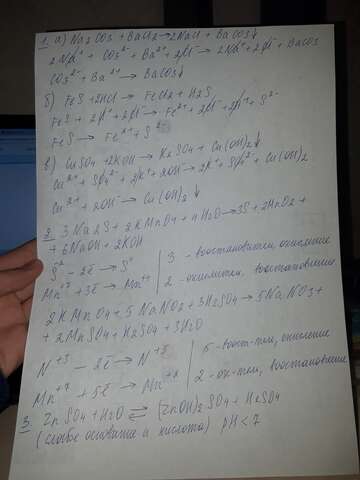 1. а) Na2CO3 + BaCl2 → 2NaCl + BaCO3↓
2Na⁺ + CO3²⁻ + Ba²⁺ + 2Cl⁻ → 2Na⁺ + 2Cl⁻ + BaCO3
CO3²⁻ + Ba²⁺ → BaCO3↓
б) FeS + 2HCl → FeCl2 + H2S
FeS + 2H⁺ + 2Cl⁻ → Fe²⁺ + 2Cl⁻ + 2H⁺ + S²⁻
FeS → Fe²⁺ + S²⁻
в) CuSO4 + 2KOH → K2SO4 + Cu(OH)2↓
Cu²⁺ + SO4²⁻ + 2K⁺ + 2OH⁻ → 2K⁺ + SO4²⁻ + Cu(OH)2
Cu²⁺ + 2OH⁻ → Cu(OH)2↓
2. 3Na2S + 2KMnO4 + 4H2O → 3S + 2MnO2 +
+ 6NaOH + 2KOH
S²⁻ - 2ē → S⁰ | 3 - восстановитель, окисление
+ 3ē → | 2 - окислитель, восстановление
2KMnO4 + 5NaNO2 + 3H2SO4 → 5NaNO3 +
+ 2MnSO4 + + 3H2O
N⁺³ - 2ē → N⁺⁵ | 5 - восст-тель, окисление
Mn⁺⁷ + 5ē → Mn⁺² | 2 - ок-тель, восстановление
3. ZnSO4 + H2O ⇄ (ZnOH)2SO4 + H2SO4
(слабое основание и кислота) pH < 7